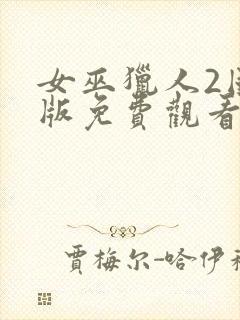 女巫獵人2
版免費觀看
賈梅尔-哈伊